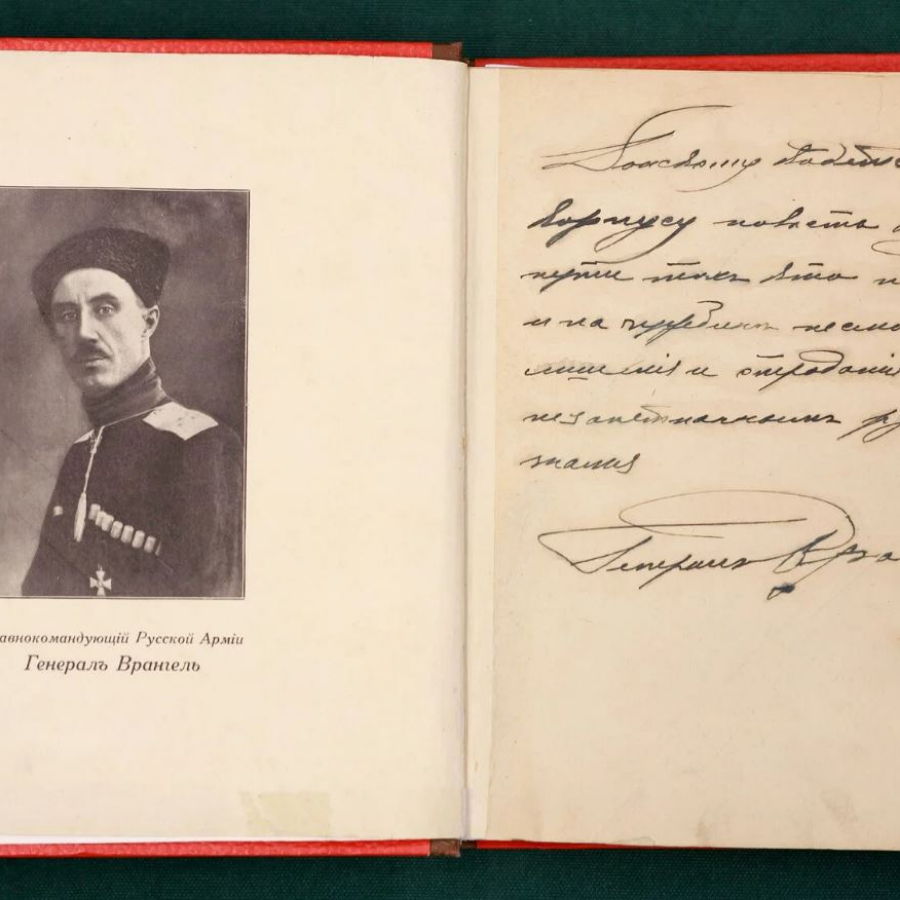 авнокомандующій Русской Арміи
Генералъ Врангель
Донскому Кадетс
Корпусу повѣсть
пути тѣхъ кто
и на чужбинѣ несмо
лишенія и страданія
незапятнаннымъ ру
знамя
Генералъ Вра